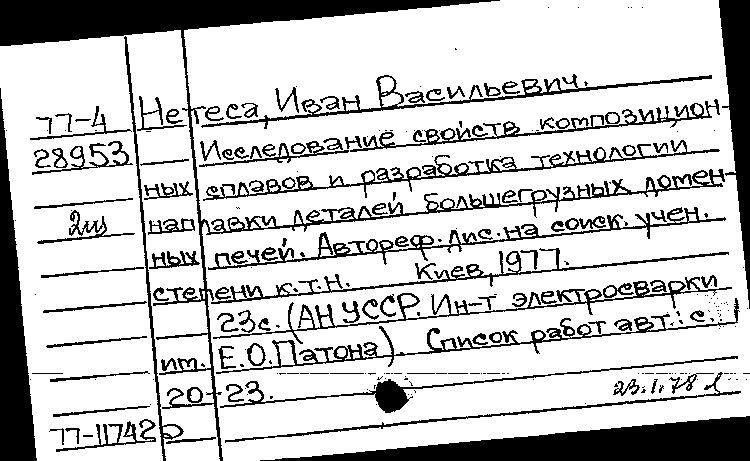 77-4 Нетеса, Иван Васильевич.
28953 Исследование свойств композицион-
ных сплавов и разработка технологии
2ш наплавки деталей большегрузных домен-
ных печей. Автореф. дис. на соиск. учен.
степени к.т.н. Киев, 1977.
23с. (АН УССР. Ин-т электросварки
им. Е.О.Патона). Список работ авт.: с.
20-23.
23.1.78
77-11742